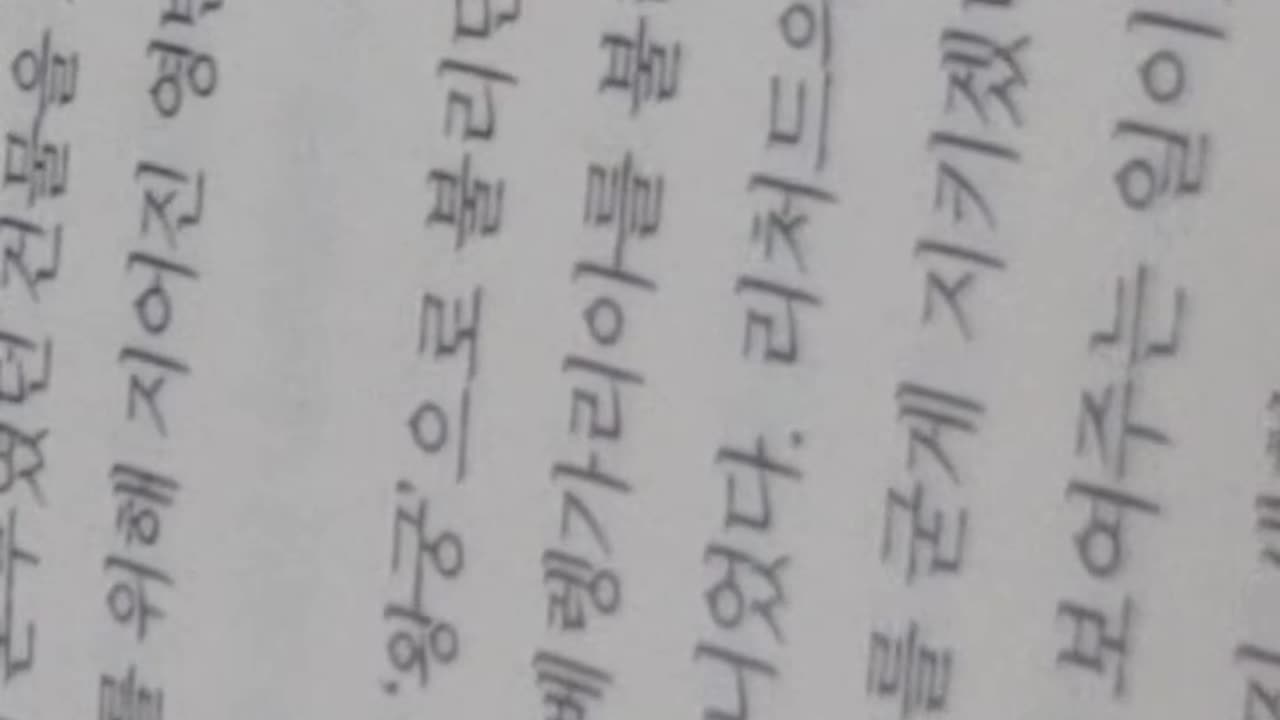 건물을
를 위해 지어진 영
'왕궁'으로 불리
베렝가리아를 불
니었다. 리처드으
를 굳게 지키겠
보여주는 일이